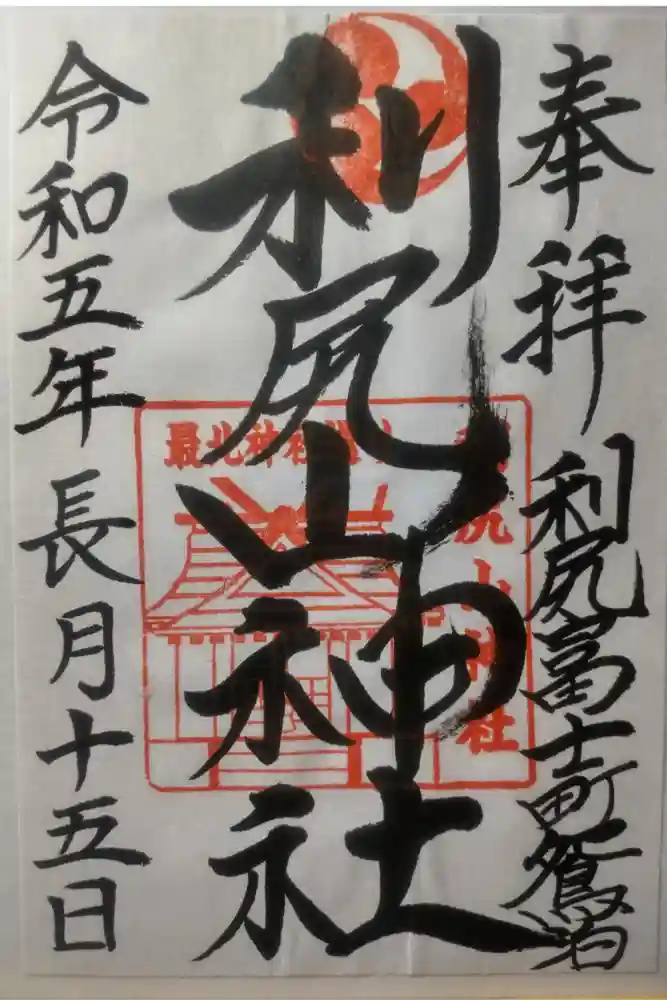 奉拝
利尻富士町鴛泊
利尻山神社
最北神社
利尻山神社
令和五年長月十五日